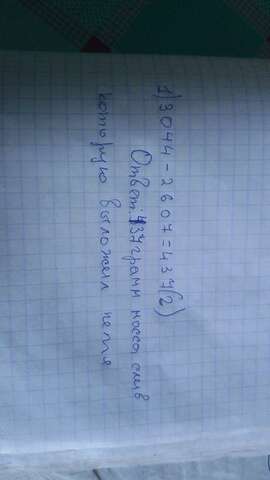 1) 3044 - 2607 = 437(г)
Ответ: 437 грамм масса слив
которую выложил петя